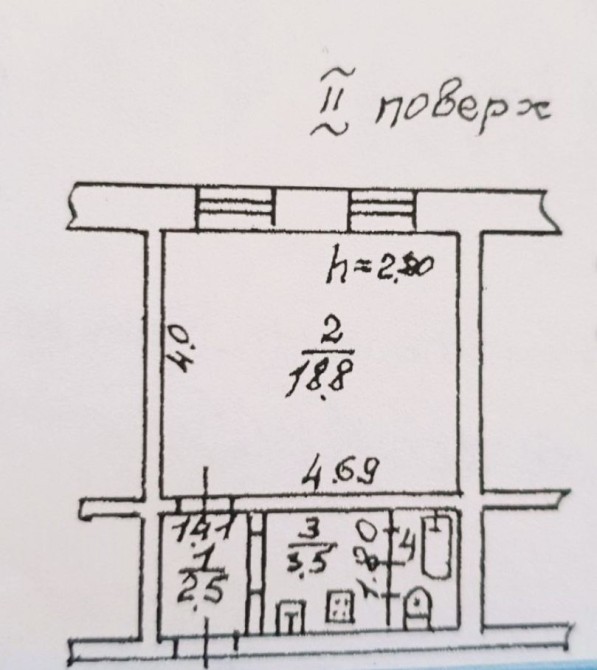 II поверх
h=2.80
4.0
2
18.8
4.69
1.41
1
2.5
3
3.5
1.80
4